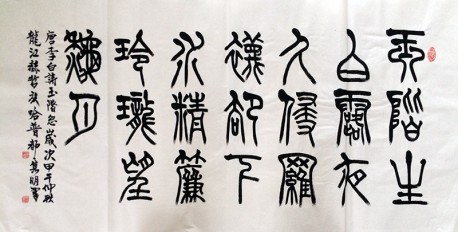 玉階生
白露夜
久侵羅
襪卻下
水精簾
玲瓏望
秋月
唐李白詩玉階怨歲次甲午仲秋
龍江赫哲族哈普都隽明書